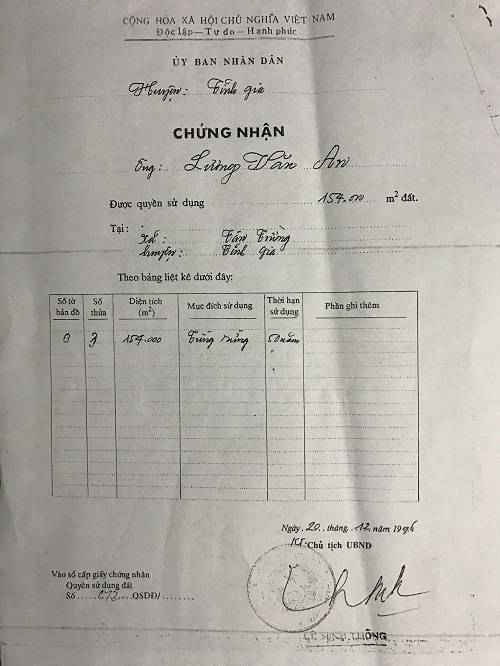 CỘNG HÒA XÃ HỘI CHỦ NGHĨA VIỆT NAM
Độc lập — Tự do — Hạnh phúc
ỦY BAN NHÂN DÂN
Huyện: Tĩnh gia
CHỨNG NHẬN
Ông: Lường Văn An
Được quyền sử dụng 154.000 m² đất.
Tại:
Xã: Tân Trường
Huyện: Tĩnh Gia
Theo bảng liệt kê dưới đây:
Số tờ bản đồ Số thửa Diện tích (m²) Mục đích sử dụng Thời hạn sử dụng Phần ghi thêm
0 3 154.000 Trồng rừng 50 năm
Ngày 20 tháng 12 năm 1996
KT. Chủ tịch UBND
Vào sổ cấp giấy chứng nhận
Quyền sử dụng đất
Số QSDĐ/